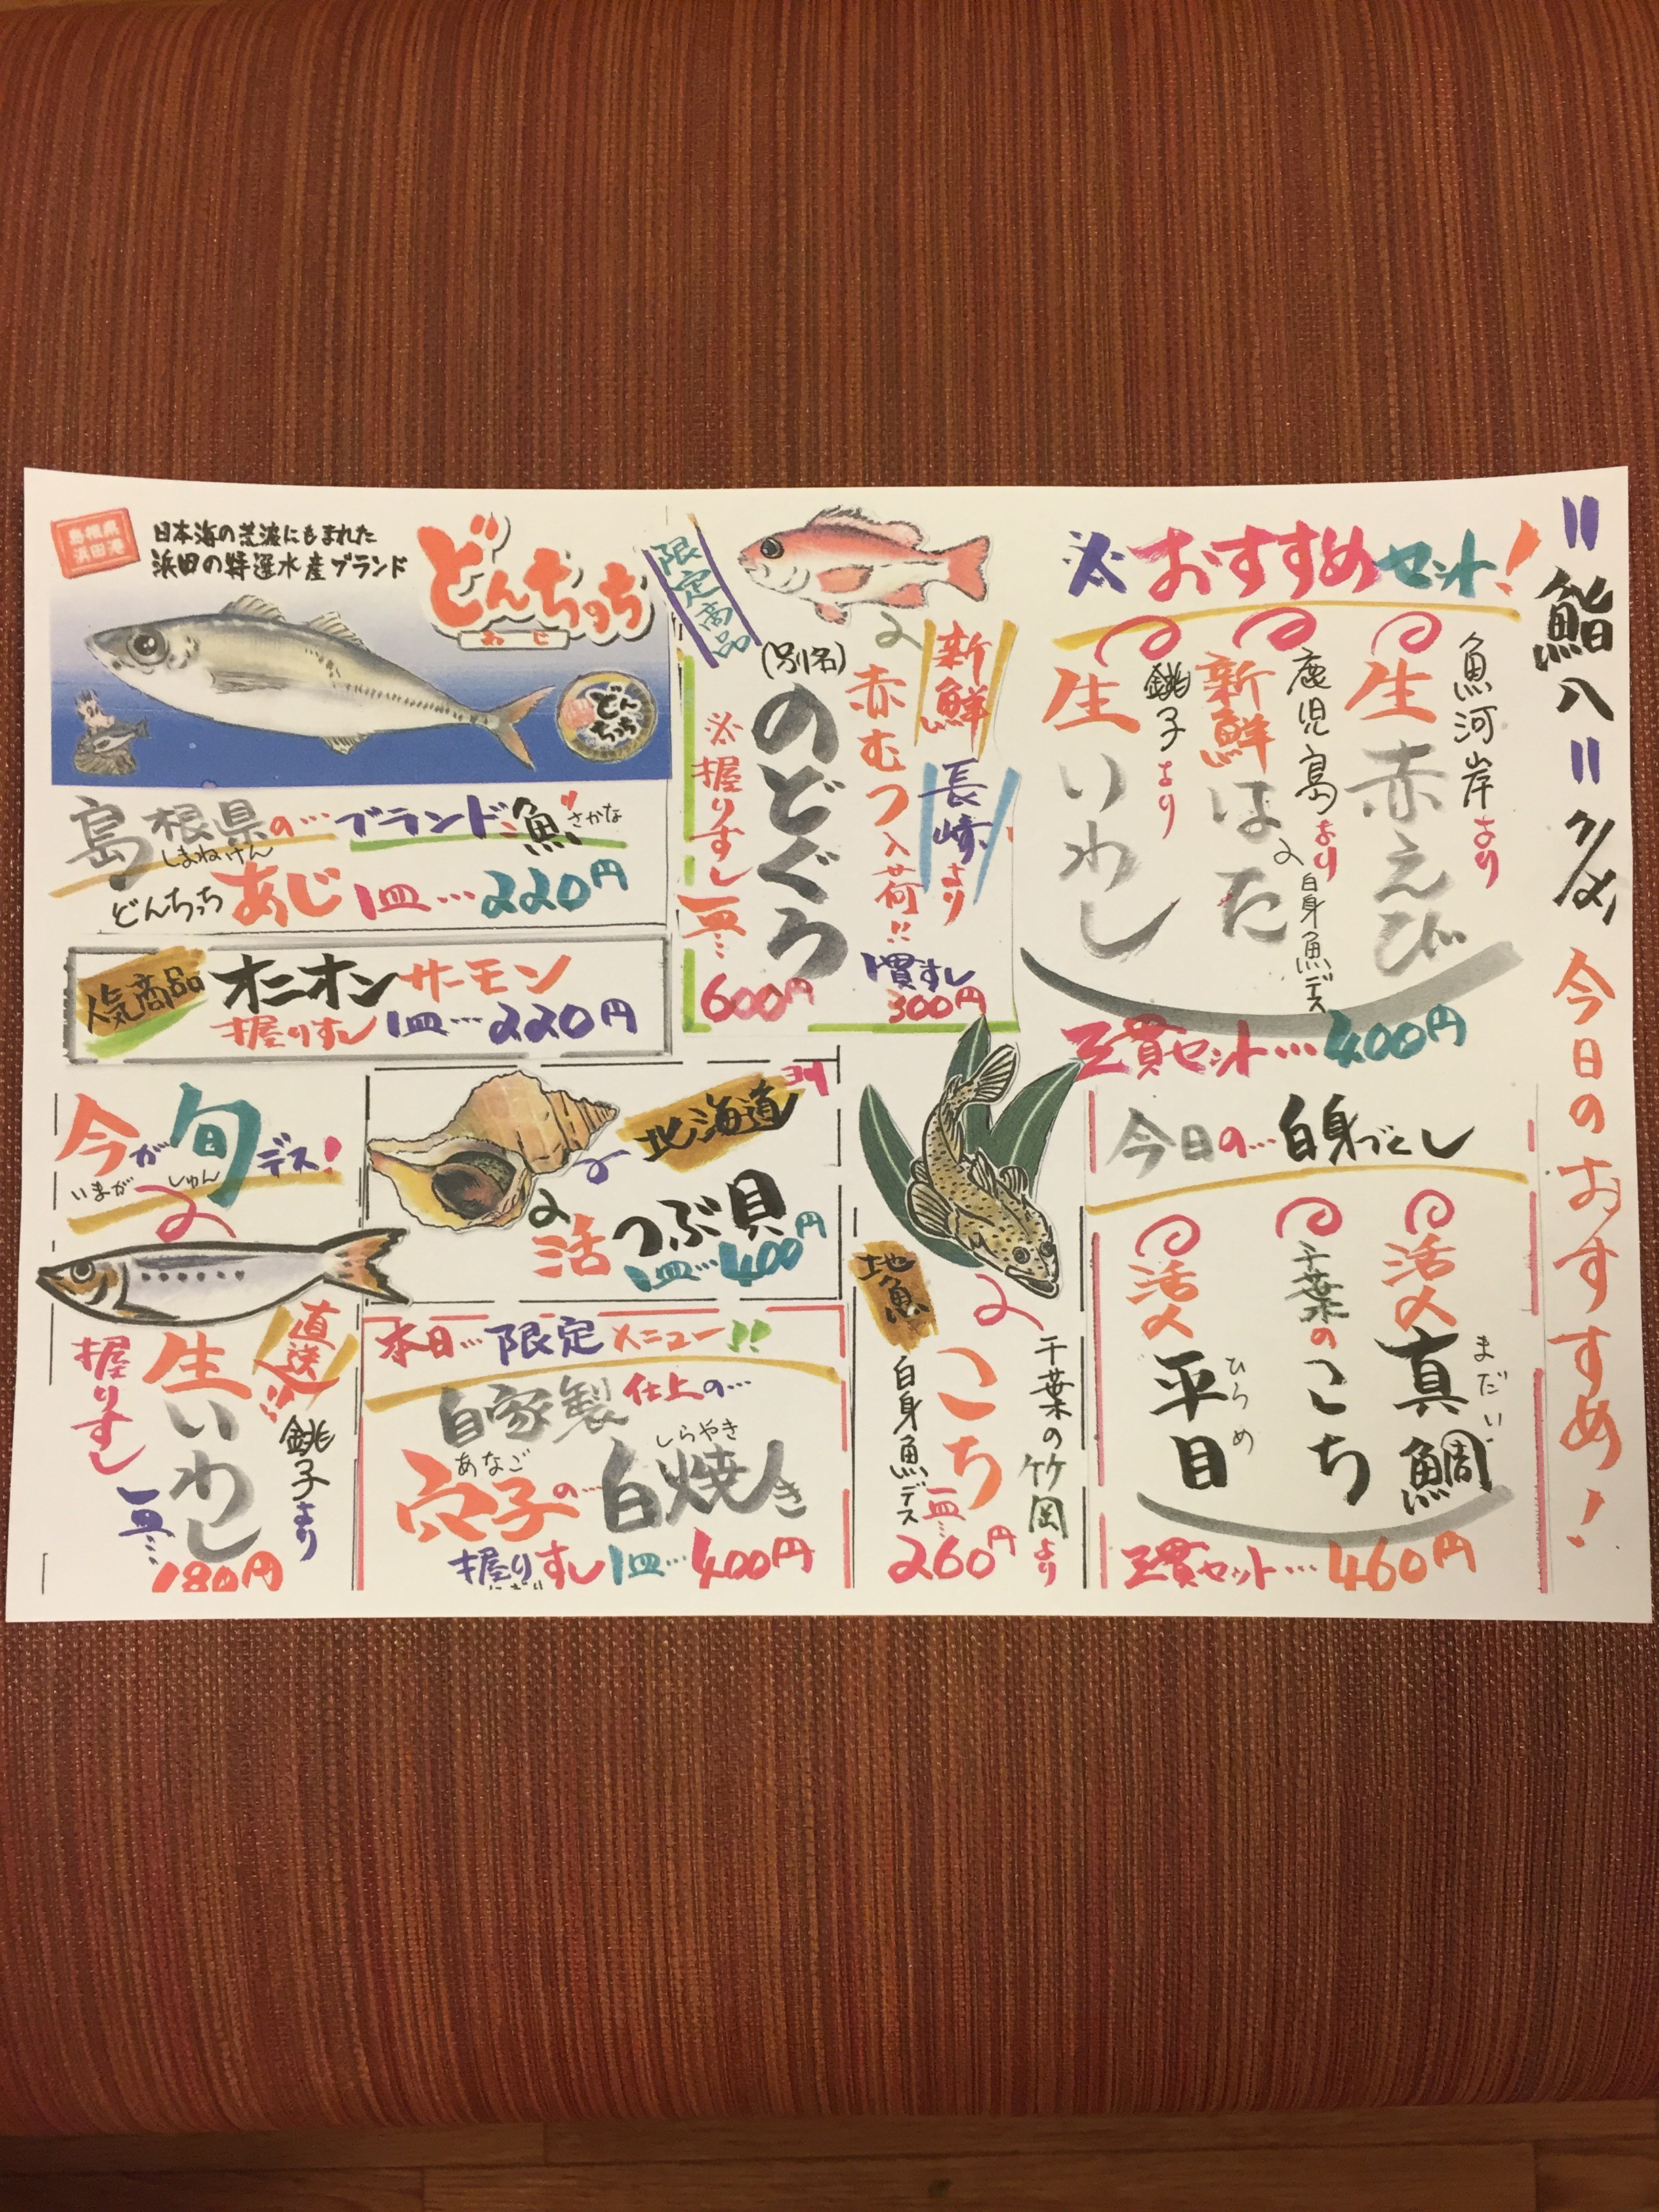 "鮨八" 今日のおすすめ!
※おすすめセット!
魚河岸より
生赤えび
鹿児島より
新鮮はた
白身魚デス
銚子より
生いわし
三貫セット…400円
今日の…白身づくし
活〆真鯛
まだい
千葉のこち
活〆平目
ひらめ
三貫セット…460円
限定商品
新鮮
長崎より
赤むつ入荷!!
(別名)
のどぐろ
※握りすし一皿…
600円
一貫すし
300円
島根県
浜田港
日本海の荒波にもまれた
浜田の特選水産ブランド
どんちっち
あじ
どんちっち
島根県の…ブランド魚
しまねけん
さかな
どんちっちあじ1皿…220円
人気商品
オニオンサーモン
握りすし1皿…220円
地魚
千葉の竹岡より
こち
白身魚デス
一皿…
260円
北海道
活つぶ貝
1皿…400円
本日…限定メニュー!!
自家製仕上の…
穴子の…白焼き
あなご
しらやき
握りすし1皿…400円
今が旬デス!
いまが
しゅん
直送!!
銚子より
生いわし
握りすし
一皿…
180円